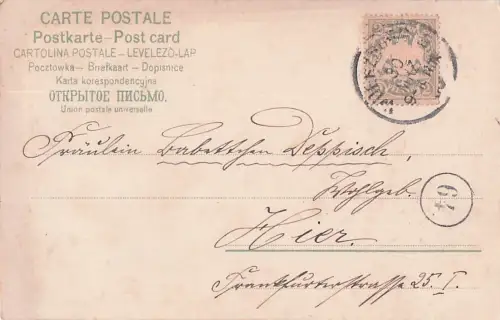 CARTE POSTALE
Postkarte – Post card
CARTOLINA POSTALE – LEVELEZÖ-LAP
Pocztówka – Briefkaart – Dopisnice
Karta korespondencyjna
ОТКРЫТОЕ ПИСЬМО.
Union postale universelle
Fräulein Babettchen Deppisch,
Wohlgeb.
Hier.
Frankfurterstrasse 25. I.
64